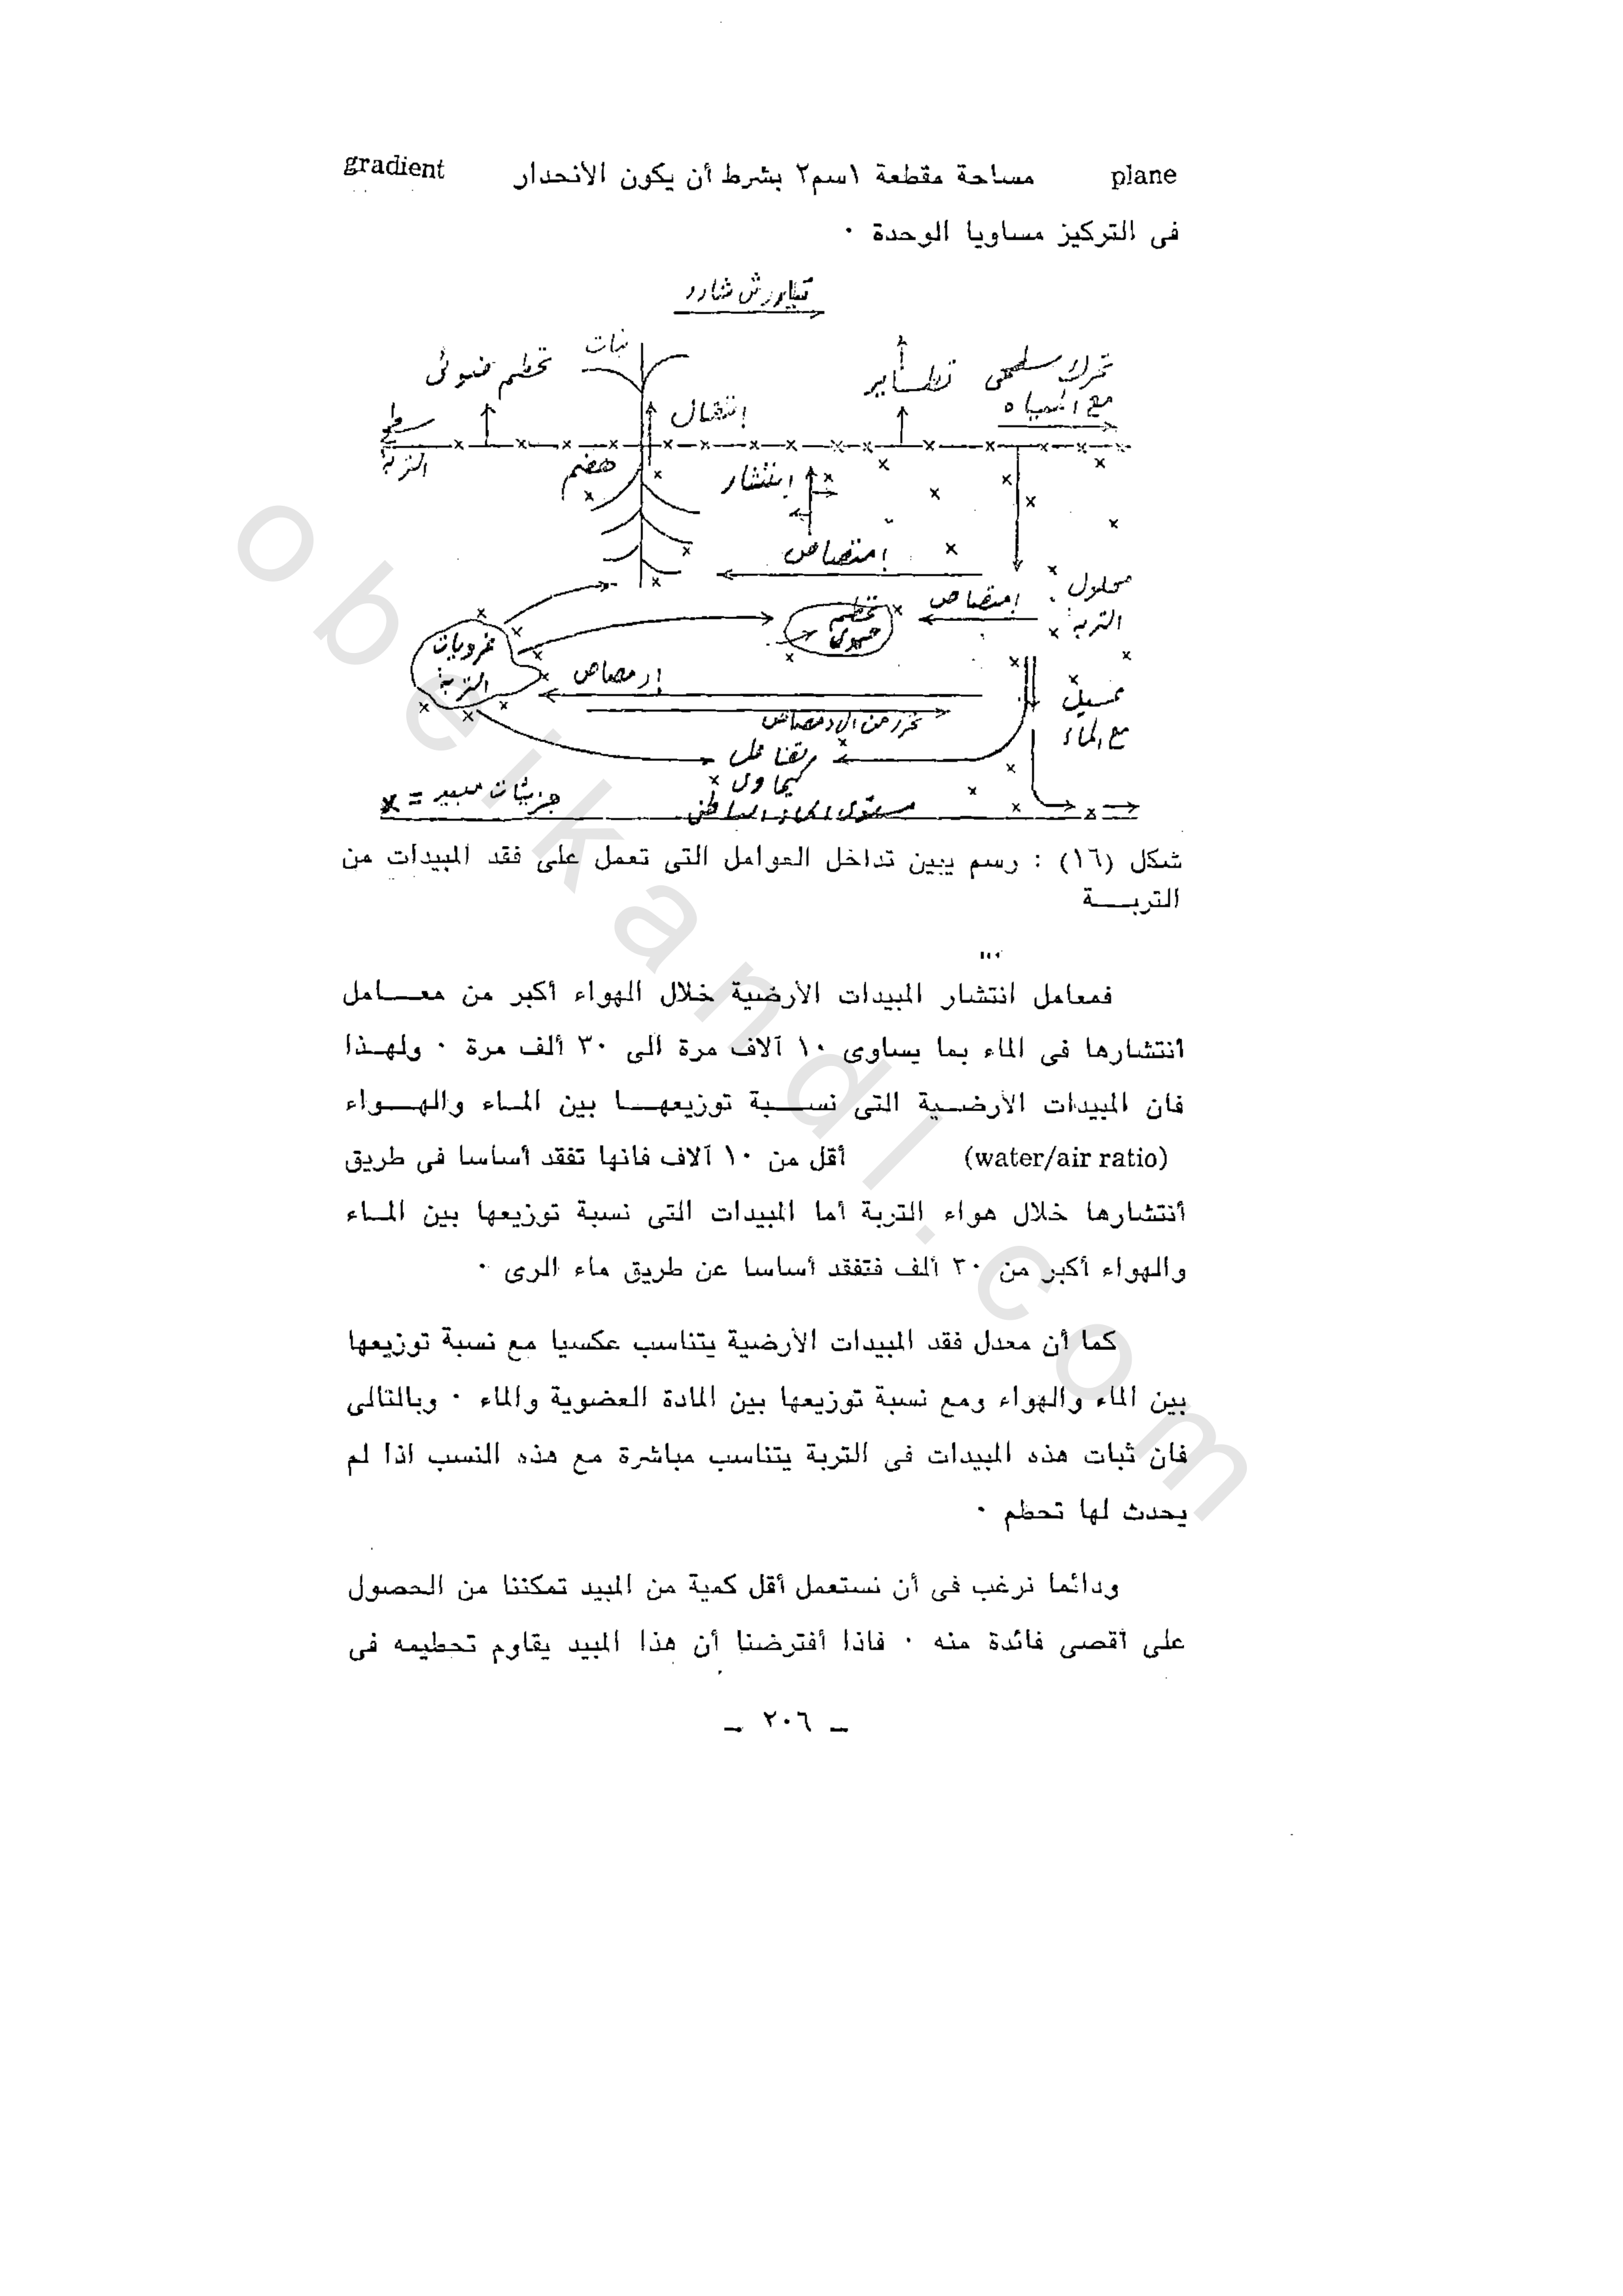 plane مساحة مقطعة ١سم٢ بشرط أن يكون الانحدار gradient
فى التركيز مساويا الوحدة ٠
تطاير رش شارد
نبات
تحطم ضوئى
تحرك سطحى
تطاير
مع المياه
إنتقال
سطح
التربة
هضم
إنتشار
إمتصاص
محلول
التربة
إمتصاص
تحطم
حيوى
غرويات
التربة
إدمصاص
غسيل
مع الماء
تحرر من الادمصاص
تفاعل
كيماوى
x = جزيئات مبيد
مستوى الماء الباطنى
شكل (١٦) : رسم يبين تداخل العوامل التى تعمل على فقد المبيدات من
التربــــة
فمعامل انتشار المبيدات الأرضية خلال الهواء أكبر من معـــامل
انتشارها فى الماء بما يساوى ١٠ آلاف مرة الى ٣٠ ألف مرة ٠ ولهـذا
فان المبيدات الأرضـية التى نســـبة توزيعهــا بين المـاء والهــواء
(water/air ratio) أقل من ١٠ آلاف فانها تفقد أساسا فى طريق
أنتشارها خلال هواء التربة أما المبيدات التى نسبة توزيعها بين المـاء
والهواء أكبر من ٣٠ ألف فتفقد أساسا عن طريق ماء الرى ٠
كما أن معدل فقد المبيدات الأرضية يتناسب عكسيا مع نسبة توزيعها
بين الماء والهواء ومع نسبة توزيعها بين المادة العضوية والماء ٠ وبالتالى
فان ثبات هذه المبيدات فى التربة يتناسب مباشرة مع هذه النسب اذا لم
يحدث لها تحطم ٠
ودائما نرغب فى أن نستعمل أقل كمية من المبيد تمكننا من الحصول
على أقصى فائدة منه ٠ فاذا أفترضنا أن هذا المبيد يقاوم تحطيمه فى
ـ ٢٠٦ ـ
obeikandl.com